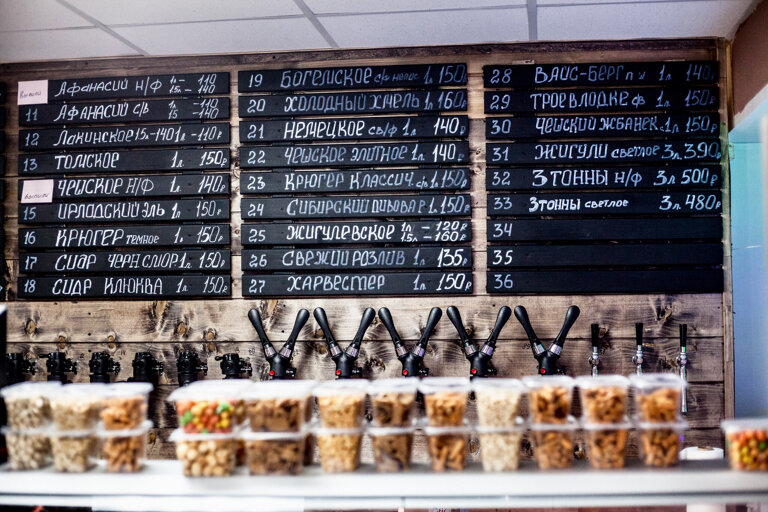 Афанасий н/ф 1л-110 1.5-140
11 Афанасий с/в 1л-110 1.5-140
12 Лакинское 1.5-140 1л-110р
13 Толское 1л 150р
Чешское н/ф 1л 140р
15 Ирлодский эль 1л 150р
16 Крюгер темное 1л 150р
17 Сидр черн смор 1л 150р
18 Сидр клюква 1л 150р
19 Богемское св непас 1л 150р
20 Холодный хмель 1л 160р
21 Немецкое св/ф 1л 140р
22 Чешское элитное 1л 140р
23 Крюгер классич св 1л 150р
24 Сибирский пивовар 1л 150р
25 Жигулевское 1л-120р 1.5л-160р
26 Свежий розлив 1л 135р
27 Харвестер 1л 150р
28 Вайс-Берг п/ш 1л 140р
29 Троевлодке фв 1л 150р
30 Чешский жбанек 1л 150р
31 Жигули светлое 3л 390р
32 3 тонны н/ф 3л 500р
33 3 тонны светлое 3л 480р
34
35
36